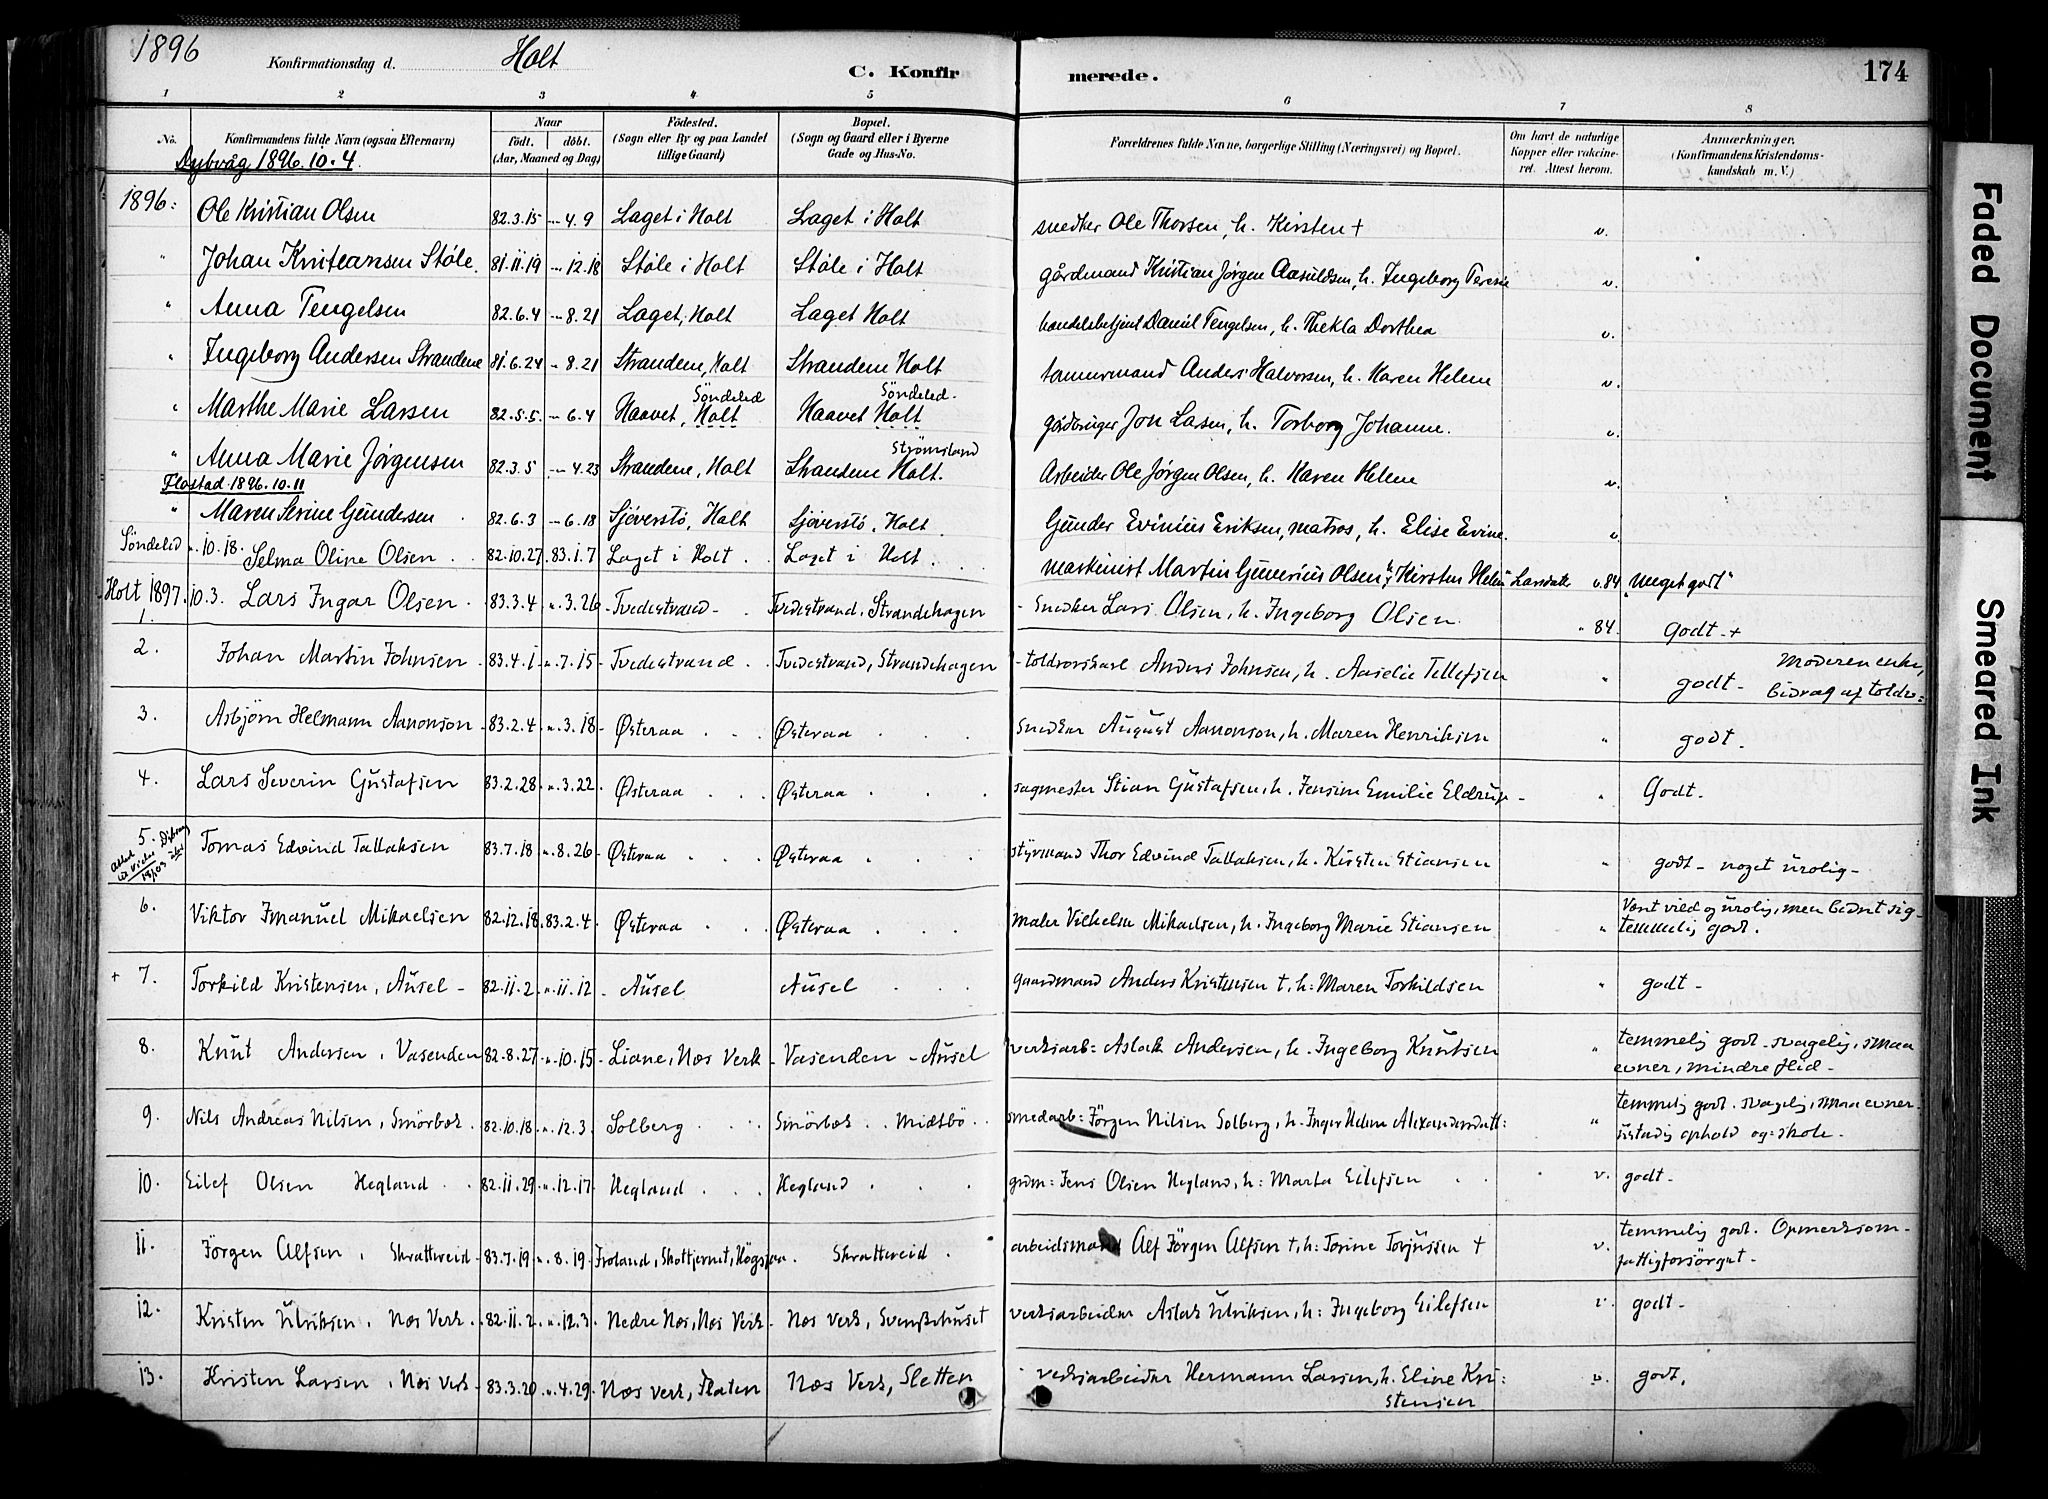 1896 Konfirmationsdag d. Holt C. Konfir merede. 174
1 2 3 4 5 6 7 8
No. Konfirmandens fulde Navn (ogsaa Efternavn) Naar Födt. döbt. (Aar, Maaned og Dag) Födested. (Sogn eller By og paa Landet tillige Gaard) Bopæl. (Sogn og Gaard eller i Byerne Gade og Hus-No. Forældrenes fulde Navne, borgerlige Stilling (Næringsvei) og Bopæl. Om havt de naturlige Kopper eller vakcineret. Attest herom. Anmærkninger. (Konfirmandens Kristendomskundskab m. V.)
Dybvåg 1896.10.4.
1896: Ole Kristian Olsen 82.3.15 -- 4.9 Laget i Holt Laget i Holt snedker Ole Thorsen, h. Kirsten + v.
" Johan Kristeansen Ståle. 81.11.19 -- 12.18 Ståle i Holt Ståle i Holt gårdmand Kristian Jørgen Aasuldsen, h. Ingeborg Teresie v.
" Anna Tengelsen 82.6.4 -- 8.21 Laget, Holt Laget Holt handelsbetjent Daniel Tengelsen, h. Thekla Dorthea v.
" Ingeborg Andersen Strandene 81.6.24 - 8.21 Strandene, Holt Strandene Holt tømmermand Anders Halvorsen, h. Karen Helene v.
" Marthe Marie Larsen 82.5.5. - 6.4 Haavet, Holt Söndeled Haavet Holt Söndeled. gårdbruger Jon Larsen, h. Torborg Johanne. v.
" Anna Marie Jørgensen 82.3.5 -- 4.23 Strandene, Holt Strandene Holt. Strömsland Arbeider Ole Jørgen Olsen, h. Karen Helene v.
Flostad 1896.10.11
" Maren Serine Gundersen 82.6.3 -- 6.18 Sjöverstö, Holt Sjöverstö, Holt Gunder Evinius Eriksen, matros, h. Elise Evine. v.
Söndeled ". 10.18. Selma Oline Olsen 82.10.27. 83.1.7 Laget i Holt Laget i Holt. maskinist Martin Gunerius Olsen, h. Kirsten Helene Larsdatter v.84 "Meget godt"
Holt 1897. 10.3. 1. Lars Ingar Olsen 83.3.4 ". 3.26 Tvedestrand Tvedestrand, Strandehagen Snedker Lars Olsen, h. Ingeborg Olsen " 84. Godt - +
2. Johan Martin Johnsen 83.4.1 ". 7.15 Tvedestrand Tvedestrand, Strandehagen toldrorskarl Anders Johnsen, h. Aaselie Tellefsen " godt - Moderen enke, bidrag af toldv:
3. Asbjørn Helmann Aanonson 83.2.4 ". 3.18 Østeraa Østeraa Snedker August Aanonson, h. Maren Henriksen " godt.
4. Lars Severin Gustafsen 83.2.28 ". 3.22 Østeraa Østeraa sagmester Stian Gustafsen, h. Jensine Emilie Eldrup " Godt.
5. Tomas Edvind Tallaksen 83.7.18 ". 8.26 Østeraa Østeraa styrmand Thor Edvind Tallaksen, h. Kirsten Stiansen " godt - noget urolig -
6. Viktor Imanuel Mikaelsen 82.12.18. 83.2.4 Østeraa Østeraa maler Vilhelm Mikaelsen, h. Ingeborg Marie Stiansen " Vært vild og urolig, men bedret sig - temmelig godt.
+ 7. Torkild Kristensen, Ausel - 82.11.2 ". 11.12 Ausel Ausel gaardmand Anders Kristensen +, h: Maren Torkildsen " godt -
8. Knut Andersen, Vasenden 82.8.27 ". 10.15 Liane, Nœs Verk Vasenden - Ausel verksarb: Aslack Andersen, h. Ingeborg Knutsen " temmelig godt - svagelig, smaa evner, mindre flid -
9. Nils Andreas Nilsen, Smörbæk 82.10.18 ". 12.3 Solberg Smörbæk Midtbö smedarb: Jörgen Nilsen Solberg, h. Inger Helene Alexandersdatt: " temmelig godt. svagelig, smaa evner - ustadig ophold og skole.
10. Eilef Olsen Hegland 82.11.29 ". 12.17 Hegland Hegland grdm: Jens Olsen Hegland, h: Marta Eilefsen v. godt -
11. Jörgen Alfsen, Skrattereid 83.7.19 ". 8.19 Froland, Skottjernet, Högsjaa Skrattereid arbeidsmand Alf Jörgen Alfsen +, h: Torine Torjussen + v. temmelig godt. Opmerksom - fattigforsørget -
12. Kristen Ulriksen, Næs Verk 82.11.2 ". 12.3 Nedre Næs, Næs Verk Næs Verk, Svenskehuset verksarbeider Aslak Ulriksen, h: Ingeborg Eilefsen v. godt -
13. Kristen Larsen, Næs Verk 83.3.20 ". 4.29 Næs verk, Flaten Næs Verk, Sletten verksarbeider Hermann Larsen, h. Eline Kristensen v. godt.
Faded Document
Smeared Ink